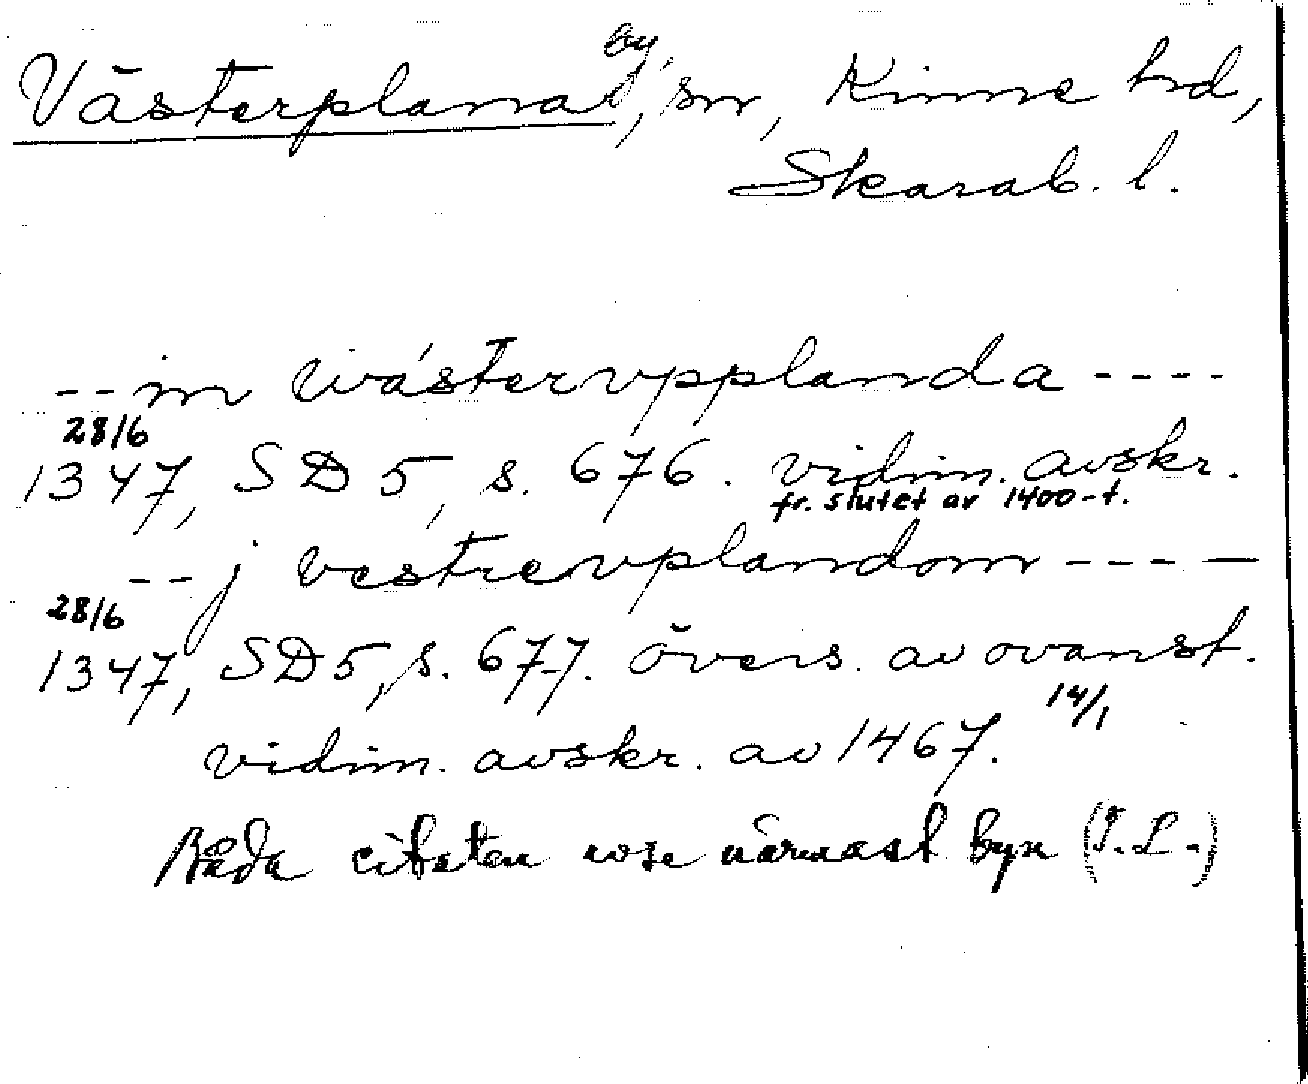 Västerplana by, sn, Kinne hd,
Skarab. l.
--in wästervpplanda ----
28/6
1347, SD 5, s. 676. vidim. avskr.
fr. slutet av 1400-t.
--j vestrevplandom ----
28/6
1347, SD 5, s. 677. övers. av ovanst.
14/1
vidim. avskr. av 1467.
Båda citaten avse närmast byn (I.L.)